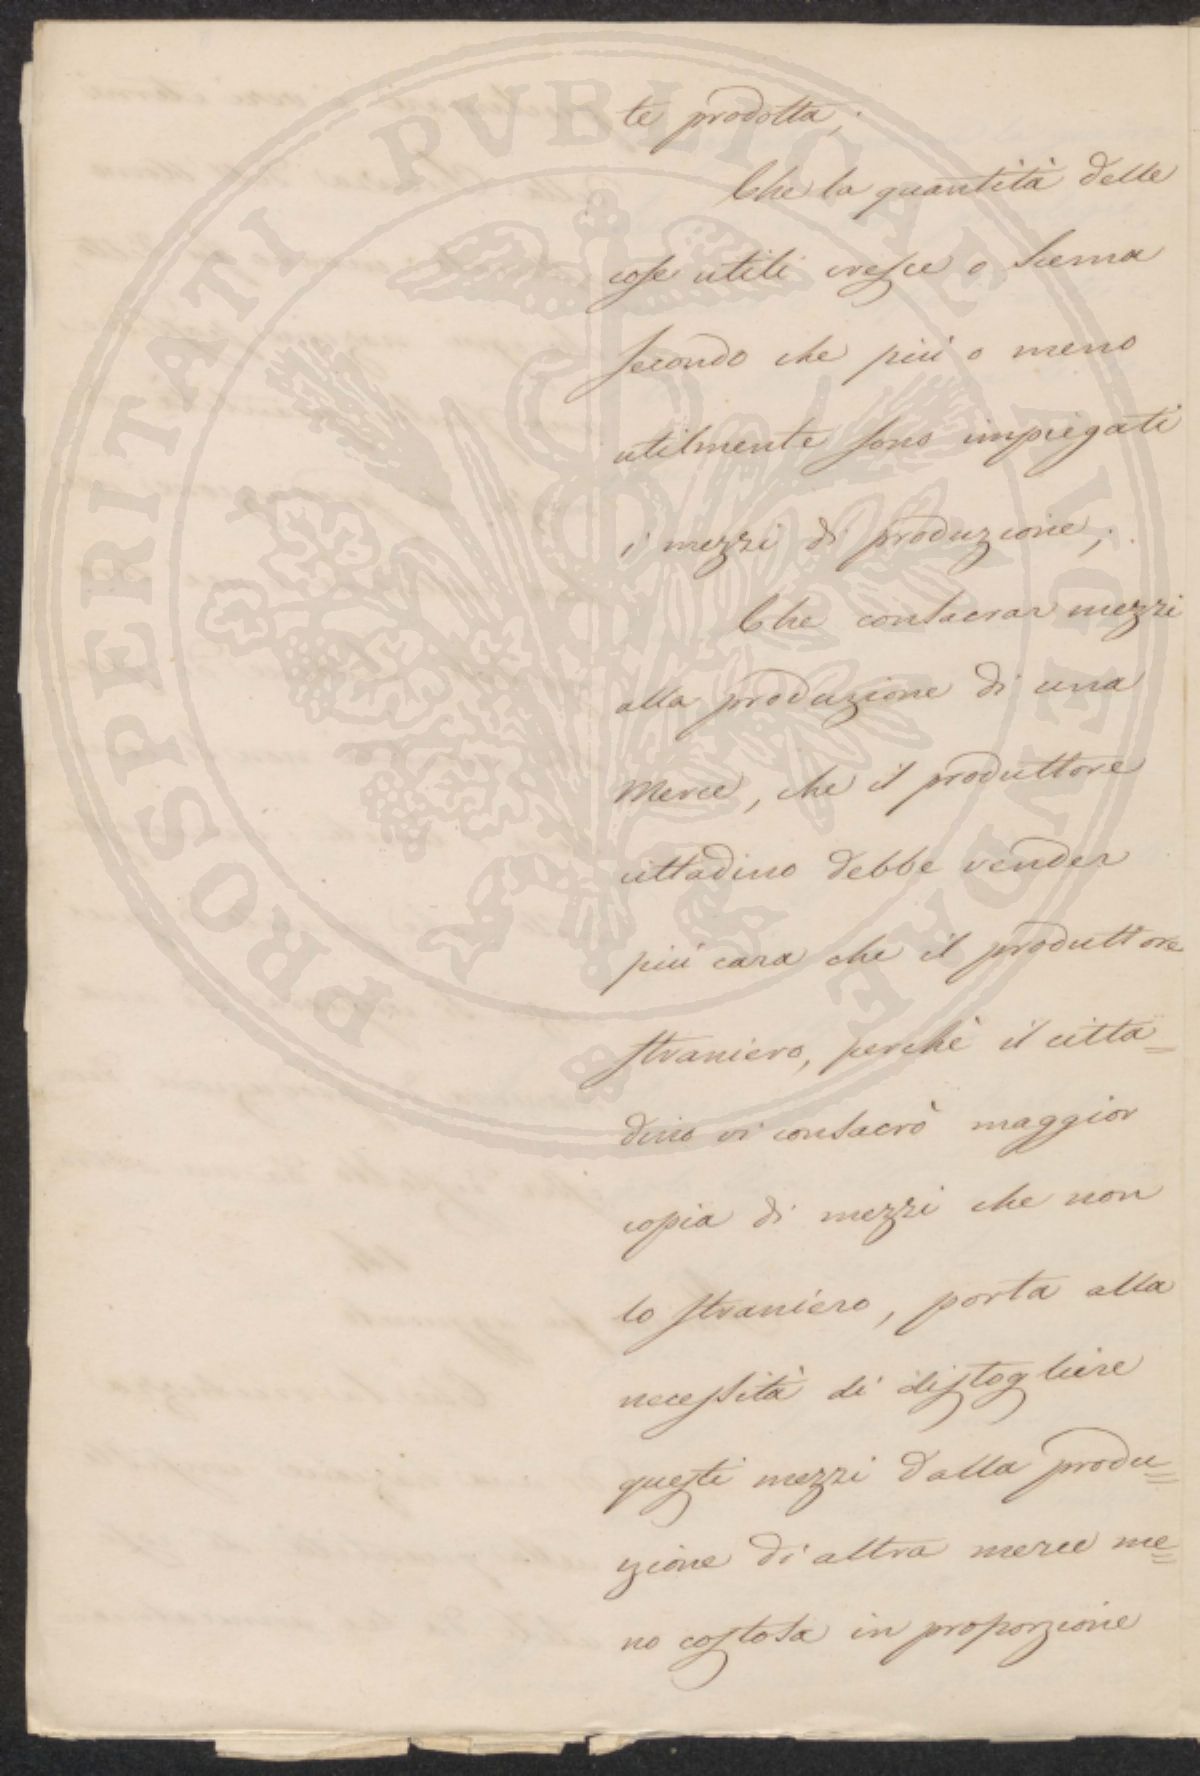 te prodotta;
Che la quantità delle
cose utili cresce o scema
secondo che più o meno
utilmente sono impiegati
i mezzi di produzione;
Che consacrar mezzi
alla produzione di una
merce, che il produttore
cittadino debbe vender
più cara che il produttore
straniero, perchè il citta=
dino vi consacrò maggior
copia di mezzi che non
lo straniero, porta alla
necessità di distogliere
questi mezzi dalla produ=
zione di altra merce me=
no costosa in proporzione
PROSPERITATI PVBLICAE AVGENDAE